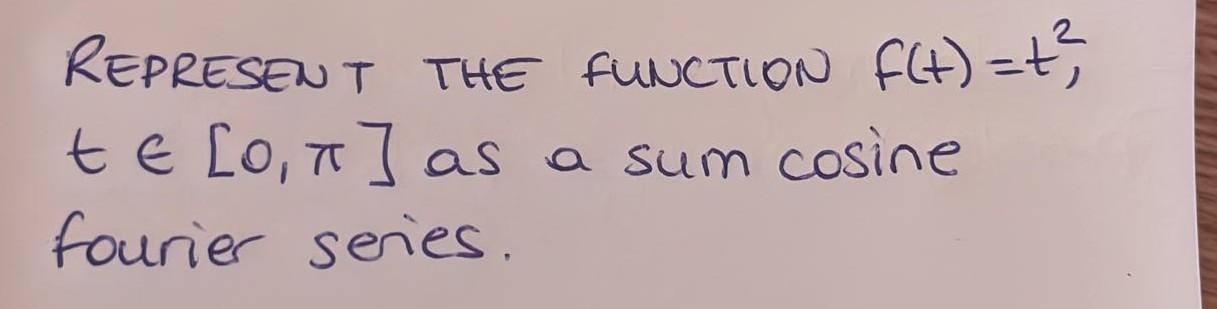 REPRESENT THE FUNCTION f(t)=t²,
t ∈ [0,π] as a sum cosine
fourier series.